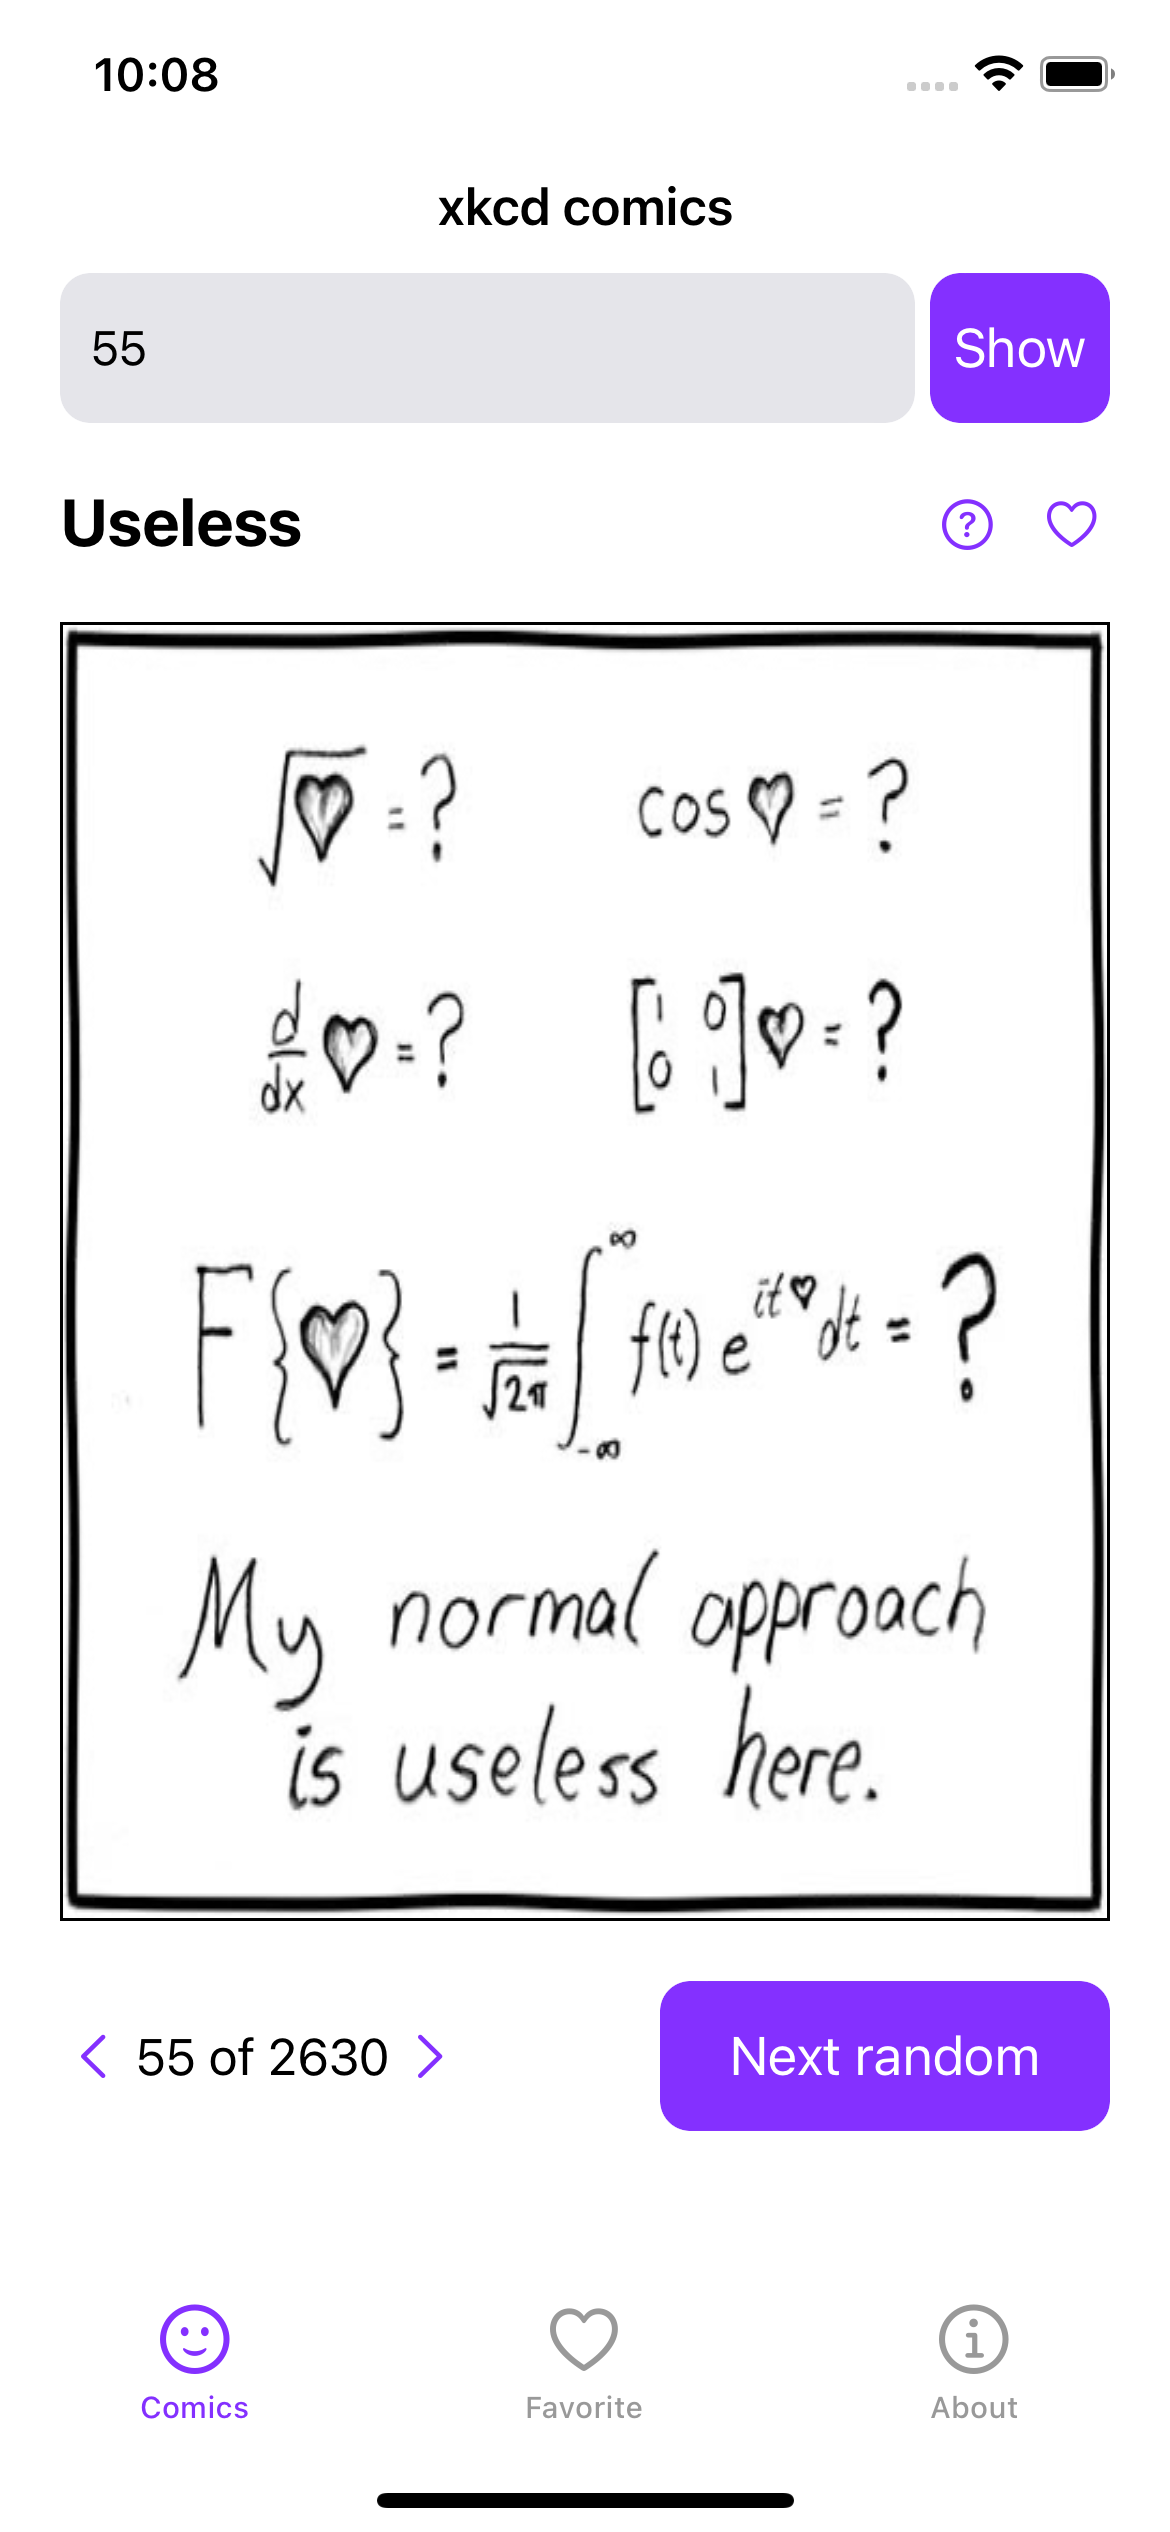 10:08
xkcd comics
55
Show
Useless
?
√♥ = ?
cos ♥ = ?
d/dx ♥ = ?
[1 0
0 1] ♥ = ?
F{♥} = 1/√2π ∫_-∞^∞ f(t) e^it♥ dt = ?
My normal approach
is useless here.
55 of 2630
Next random
Comics
Favorite
About